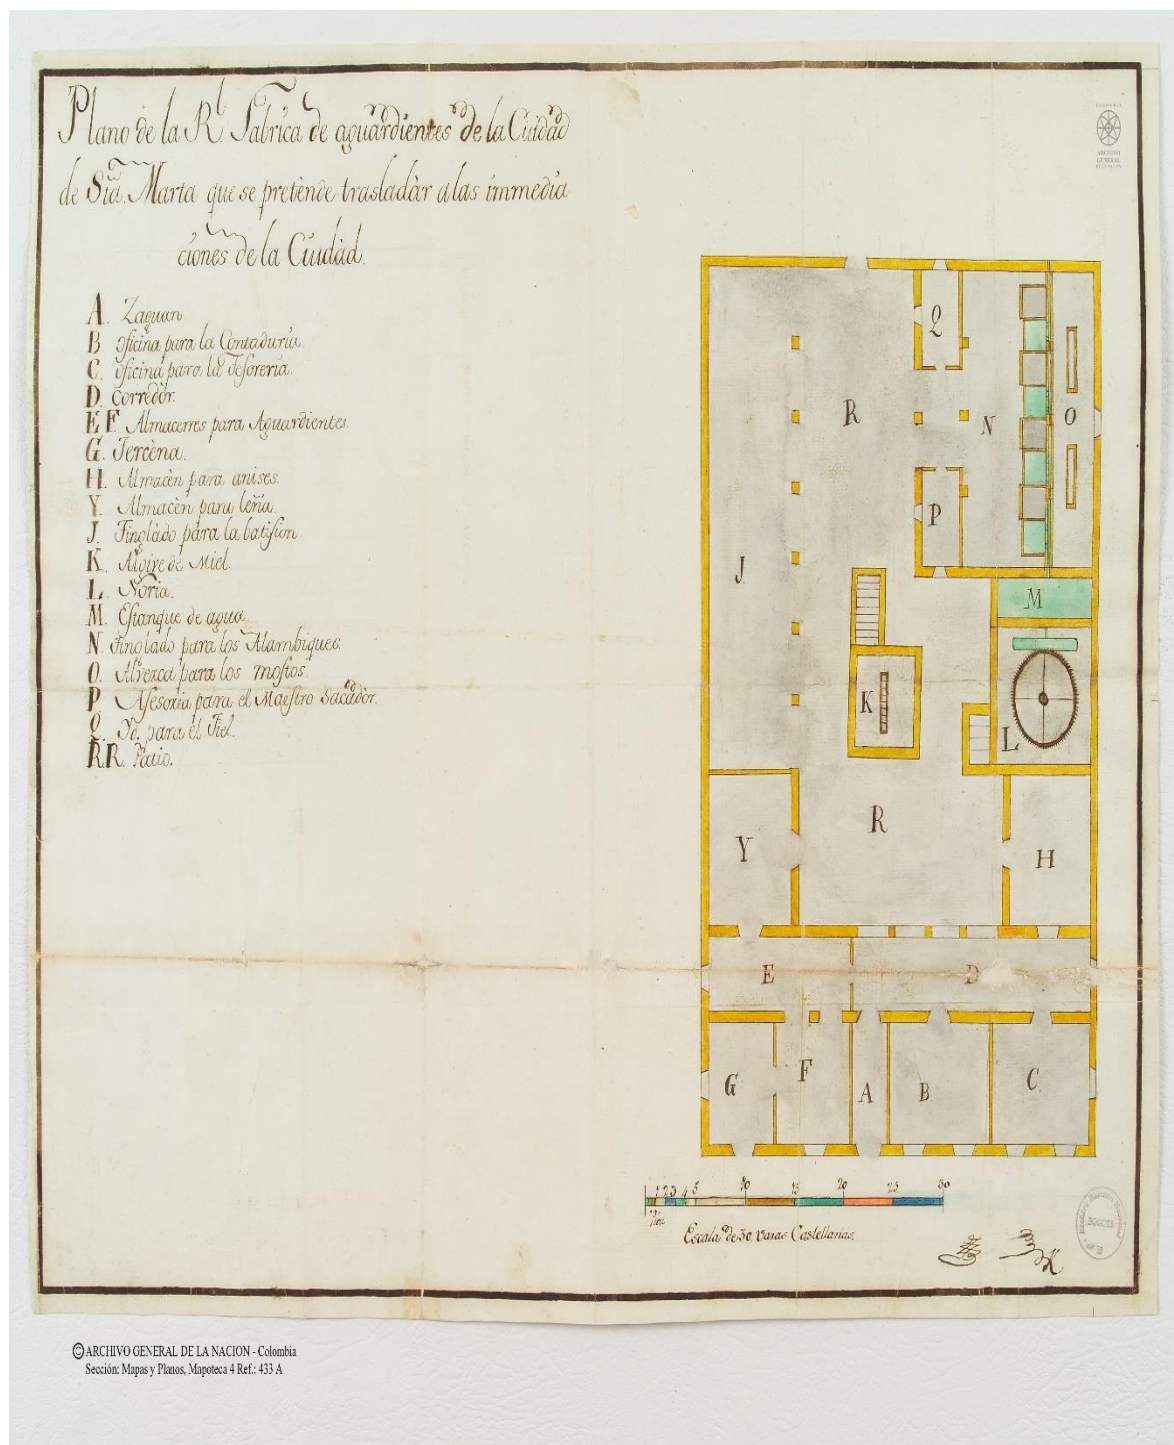 Plano de la Rl. Fabrica de aguardientes de la Ciudad
de Sta. Marta que se pretende trasladàr a las immedia
ciones de la Ciudàd.
A. Zaguan
B oficina para la Contaduria.
C. oficina para la Tesoreria.
D. Corredòr.
E F. Almacenes para Aguardientes.
G. Tercèna.
H. Almacèn para anises.
Y. Almacèn para leña.
J. Tinglado para la batision.
K. Algive de Miel.
L. Noria.
M. Estanque de agua.
N. Tinglado para los Alambiques.
O. Alverca para los mostos.
P. Asesoria para el Maestro Sacadòr.
Q. Yd. para el Fiel.
R.R. Patio.
Q
R
N
O
P
J
M
K
L
R
Y
H
E
D
G
F
A
B
C
1 2 3 4 5 10 15 20 25 30
Escala de 30 varas Castellanas.
COLOMBIA
ARCHIVO
GENERAL
DE LA NACION
BOGOTA
© ARCHIVO GENERAL DE LA NACION - Colombia
Sección: Mapas y Planos, Mapoteca 4 Ref.: 433 A